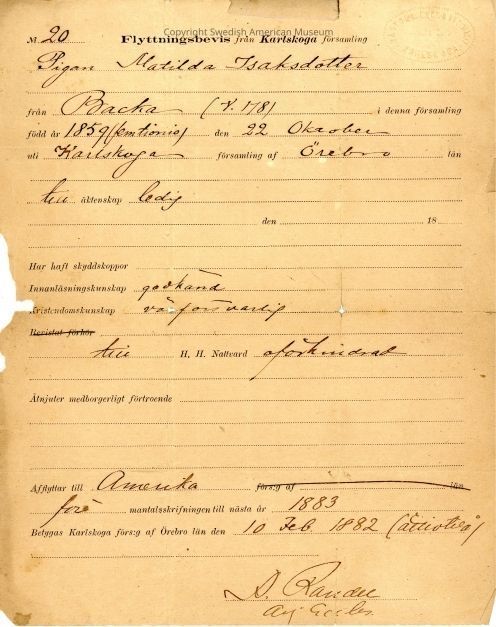 Copyright Swedish American Museum
№ 20 Flyttningsbevis från Karlskoga församling
Pigan Matilda Isaksdotter
från Backa (V. 178) i denna församling
född år 1859 (femtionio) den 22 Oktober
uti Karlskoga församling af Örebro län
till äktenskap ledig
den 18
Har haft skyddskoppor
Innanläsningskunskap godkänd
Kristendomskunskap försvarlig
Bevistat förhör
till H. H. Nattvard oförhindrad
Åtnjuter medborgerligt förtroende
Afflyttar till Amerika förs:g af län
före mantalsskrifningen till nästa år 1883
Betygas Karlskoga förs:g af Örebro län den 10 Feb. 1882 (åttiotvå)